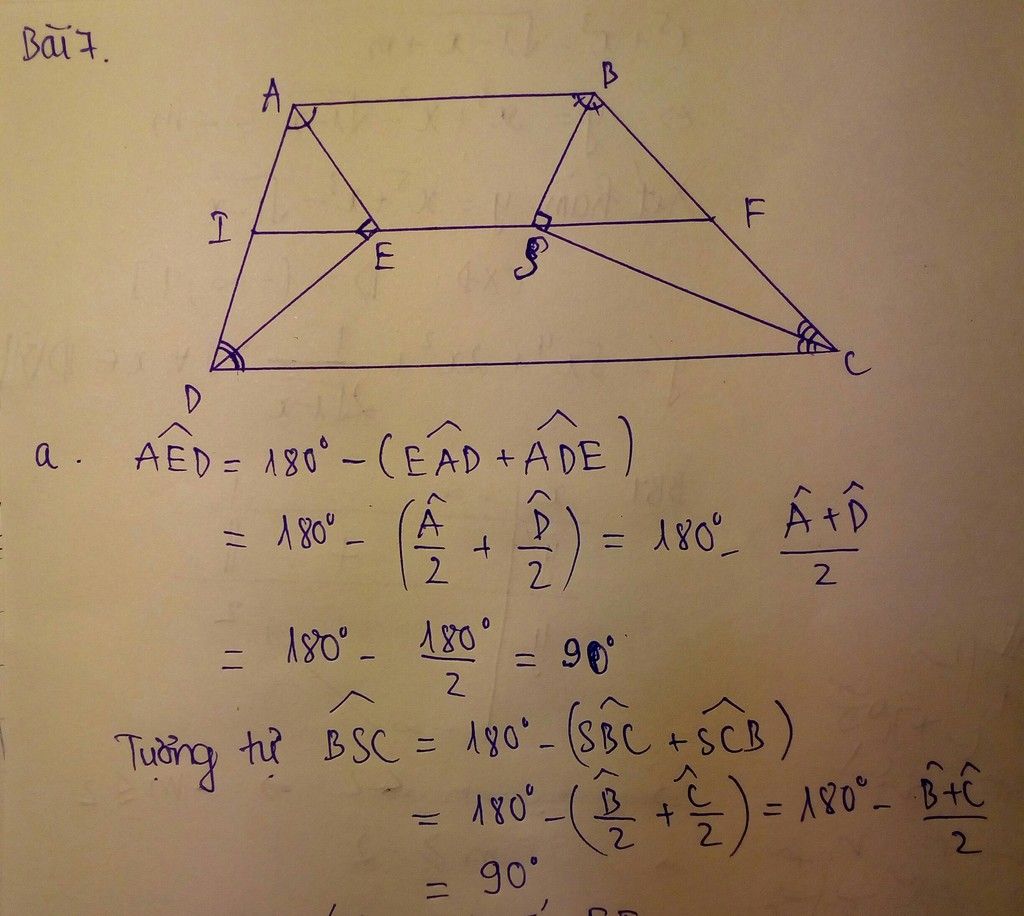 Bài 7.
A B
I E S F
D C
a. AED̂ = 180° - (EAD̂ + ADÊ)
= 180° - (Â/2 + D̂/2) = 180° - (Â+D̂)/2
= 180° - 180°/2 = 90°
Tương tự BSĈ = 180° - (SBĈ + SCB̂)
= 180° - (B̂/2 + Ĉ/2) = 180° - (B̂+Ĉ)/2
= 90°